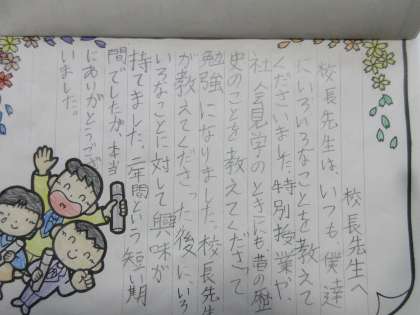 校長先生へ
校長先生は、いつも、僕達
にいろいろなことを教えて
くださいました。特別授業や、
社会見学のときにも昔の歴
史のことを教えてくださって
勉強になりました。校長先生
が教えてくださった後に、いろ
いろなことに対して興味が
持てました。二年間という短い期
間でしたが、本当
にありがとうござ
いました。